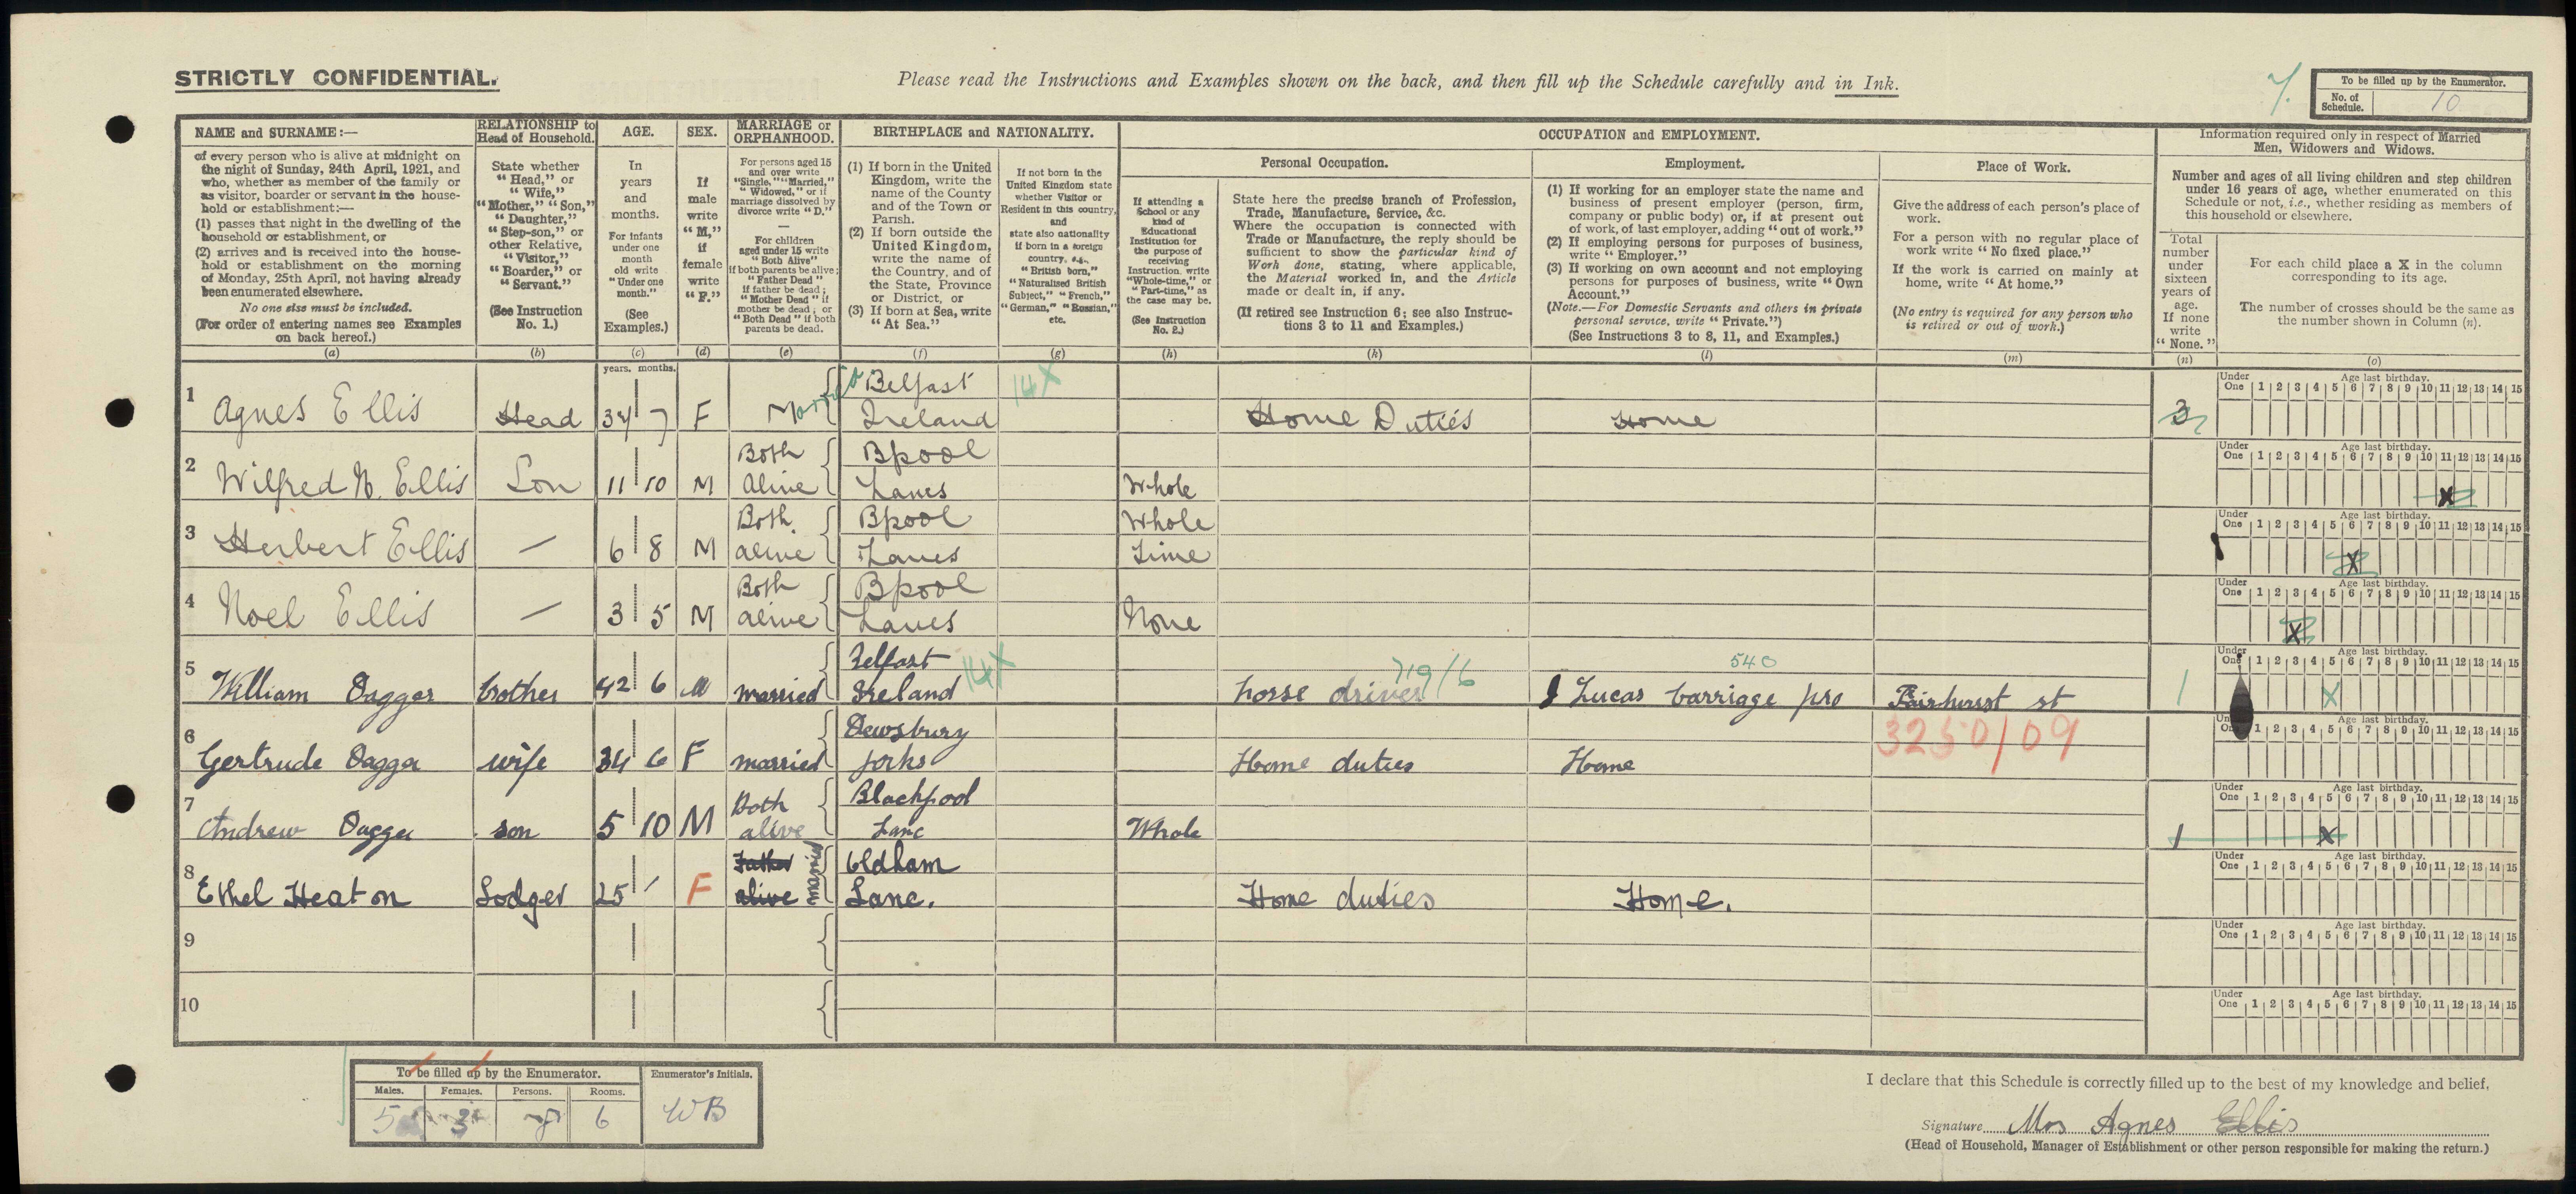 STRICTLY CONFIDENTIAL.
Please read the Instructions and Examples shown on the back, and then fill up the Schedule carefully and in Ink.
7.
To be filled up by the Enumerator.
No. of Schedule. 10
NAME and SURNAME:—
of every person who is alive at midnight on
the night of Sunday, 24th April, 1921, and
who, whether as member of the family or
as visitor, boarder or servant in the house-
hold or establishment:—
(1) passes that night in the dwelling of the
household or establishment, or
(2) arrives and is received into the house-
hold or establishment on the morning
of Monday, 25th April, not having already
been enumerated elsewhere.
No one else must be included.
(For order of entering names see Examples
on back hereof.)
(a)
RELATIONSHIP to
Head of Household.
State whether
"Head," or
"Wife,"
"Mother," "Son,"
"Daughter,"
"Step-son," or
other Relative,
"Visitor,"
"Boarder," or
"Servant."
(See Instruction
No. 1.)
(b)
AGE.
In
years
and
months.
For infants
under one
month
old write
"Under one
month."
(See
Examples.)
(c)
SEX.
If
male
write
"M,"
if
female
write
"F."
(d)
MARRIAGE or
ORPHANHOOD.
For persons aged 15
and over write
"Single," "Married,"
"Widowed," or if
marriage dissolved by
divorce write "D."
—
For children
aged under 15 write
"Both Alive"
if both parents be alive;
"Father Dead"
if father be dead;
"Mother Dead" if
mother be dead; or
"Both Dead" if both
parents be dead.
(e)
BIRTHPLACE and NATIONALITY.
(1) If born in the United
Kingdom, write the
name of the County
and of the Town or
Parish.
(2) If born outside the
United Kingdom,
write the name of
the Country, and of
the State, Province
or District, or
(3) If born at Sea, write
"At Sea."
(f)
If not born in the
United Kingdom state
whether Visitor or
Resident in this country,
and
state also nationality
if born in a foreign
country, e.g.,
"British born,"
"Naturalised British
Subject," "French,"
"German," "Russian,"
etc.
(g)
OCCUPATION and EMPLOYMENT.
If attending a
School or any
kind of
Educational
Institution for
the purpose of
receiving
Instruction, write
"Whole-time," or
"Part-time," as
the case may be.
(See Instruction
No. 2.)
(h)
Personal Occupation.
State here the precise branch of Profession,
Trade, Manufacture, Service, &c.
Where the occupation is connected with
Trade or Manufacture, the reply should be
sufficient to show the particular kind of
Work done, stating, where applicable,
the Material worked in, and the Article
made or dealt in, if any.
(If retired see Instruction 6; see also Instruc-
tions 3 to 11 and Examples.)
(k)
Employment.
(1) If working for an employer state the name and
business of present employer (person, firm,
company or public body) or, if at present out
of work, of last employer, adding "out of work."
(2) If employing persons for purposes of business,
write "Employer."
(3) If working on own account and not employing
persons for purposes of business, write "Own
Account."
(Note.—For Domestic Servants and others in private
personal service, write "Private.")
(See Instructions 3 to 8, 11, and Examples.)
(l)
Place of Work.
Give the address of each person's place of
work.
For a person with no regular place of
work write "No fixed place."
If the work is carried on mainly at
home, write "At home."
(No entry is required for any person who
is retired or out of work.)
(m)
Information required only in respect of Married
Men, Widowers and Widows.
Number and ages of all living children and step children
under 16 years of age, whether enumerated on this
Schedule or not, i.e., whether residing as members of
this household or elsewhere.
Total
number
under
sixteen
years of
age.
If none
write
"None."
(n)
For each child place a X in the column
corresponding to its age.
The number of crosses should be the same as
the number shown in Column (n).
(o)
years. months.
Under One Age last birthday. 1 2 3 4 5 6 7 8 9 10 11 12 13 14 15
1 Agnes Ellis Head 34 7 F Married Belfast Ireland 14X Home Duties Home 3
Under One Age last birthday. 1 2 3 4 5 6 7 8 9 10 11 12 13 14 15
2 Wilfred N. Ellis Son 11 10 M Both Alive Bpool Lancs Whole X
Under One Age last birthday. 1 2 3 4 5 6 7 8 9 10 11 12 13 14 15
3 Herbert Ellis — 6 8 M Both alive Bpool Lancs Whole Time X
Under One Age last birthday. 1 2 3 4 5 6 7 8 9 10 11 12 13 14 15
4 Noel Ellis — 3 5 M Both alive Bpool Lancs None X
Under One Age last birthday. 1 2 3 4 5 6 7 8 9 10 11 12 13 14 15
5 William Dagger brother 42 6 M married Belfast Ireland 14X horse driver 719/6 J Lucas Carriage pro 540 Fairhurst st 1 X
Under One Age last birthday. 1 2 3 4 5 6 7 8 9 10 11 12 13 14 15
6 Gertrude Dagger wife 34 6 F married Dewsbury yorks Home duties Home 3250/09
Under One Age last birthday. 1 2 3 4 5 6 7 8 9 10 11 12 13 14 15
7 Andrew Dagger son 5 10 M Both alive Blackpool Lanc Whole 1 X
Under One Age last birthday. 1 2 3 4 5 6 7 8 9 10 11 12 13 14 15
8 Ethel Heaton Lodger 25 F Father alive married Oldham Lanc. Home duties Home.
Under One Age last birthday. 1 2 3 4 5 6 7 8 9 10 11 12 13 14 15
9
Under One Age last birthday. 1 2 3 4 5 6 7 8 9 10 11 12 13 14 15
10
To be filled up by the Enumerator.
Males. Females. Persons. Rooms.
5 3 6
Enumerator's Initials.
WB
I declare that this Schedule is correctly filled up to the best of my knowledge and belief.
Signature Mrs Agnes Ellis
(Head of Household, Manager of Establishment or other person responsible for making the return.)